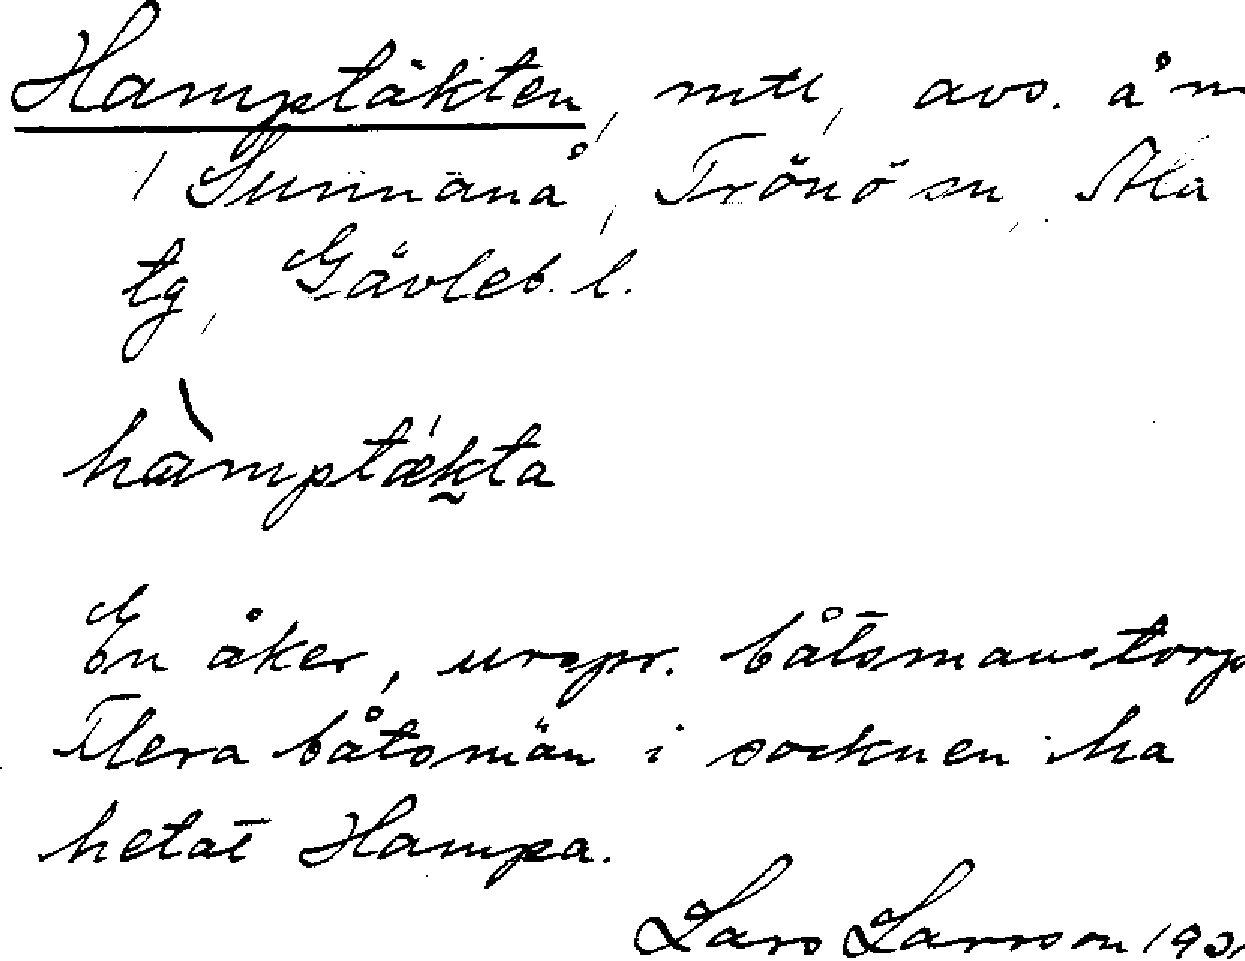 Hamptäkten, mtl, avs. å m
i Sunnanå, Trönö sn, Ala
tg, Gävleb. l.
hàmptǽk̰ta
En åker, urspr. båtsmanstorp
Flera båtsmän i socknen ha
hetat Hampa.
Lars Larsson